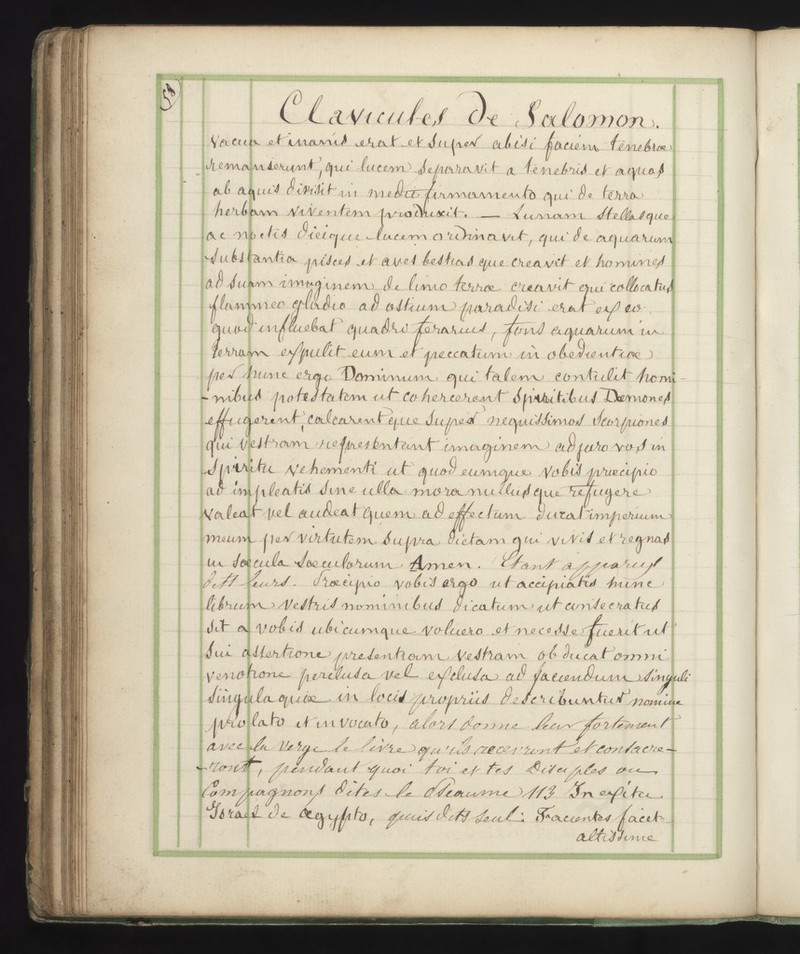 58
Clavicules de Salomon.
vacua et inanis erat et super abisi faciem tenebræ
remanserunt, qui lucem separavit a tenebris et aquas
ab aquis divisit in medio firmamento qui de terra
herbam viventem produxit. — Lunam stellasque
ac noctis dieique lucem ordinavit, qui de aquarum
substantia pisces et aves bestias que creavit et homines
ad suam imaginem de limo terræ creavit qui collocatus
flammeo gladio ad ostium paradisi erat ex eo
quod influebat quadri ferarius, fons aquarum in
terram expulit eum et peccatum in obedientiæ
per hunc ergo Dominum qui talem contulit homi-
-nibus potestatem ut cohercerent Spiritibus Dæmones
effugerent, calcarent que super nequissimos scorpiones
qui vestram repræsentant imaginem adjuro vos in
Spiritu vehementi ut quod eumque vobis præcipio
ad impleatis sine ulla mora nullusque refugere
valeat vel audeat quem ad effectum ducat imperium
meum per virtutem supra dictam qui vivis et regnas
in sæcula sæculorum Amen. Etant apparus
dis leurs. Præcipio vobis ergo ut accipiatis hunc
librum vestris nominibus dicatum ut consecratus
sit a vobis ubicumque voluero et necesse fuerit ut
sui assertione presentiam vestram ob ducat omni
venotione perclusa vel exclusa ad faciendum singuli
singula quæ in locis propriis describuntur nomine
prolato et invocato, alors donne leur fortement
avec la verge le livre qu'ils recevront et consacre-
-ront, pendant quoi toi et tes Disciples ou
Compagnons dites le Pseaume 113 In exitu
Israel de ægypto, puis dis seul: Facientes facit
altissime